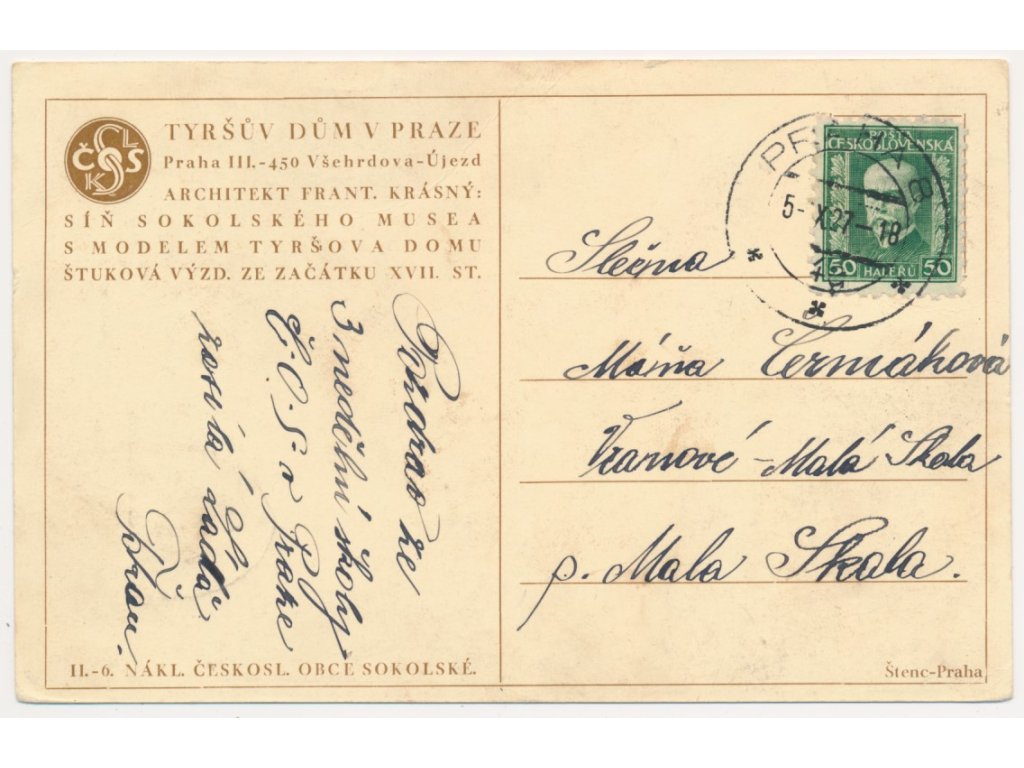 ČOS
TYRŠŮV DŮM V PRAZE
Praha III.-450 Všehrdova-Újezd
ARCHITEKT FRANT. KRÁSNÝ:
SÍŇ SOKOLSKÉHO MUSEA
S MODELEM TYRŠOVA DOMU
ŠTUKOVÁ VÝZD. ZE ZAČÁTKU XVII. ST.
Pozdrav ze
3 nedělní školy
Č.O.S v Praze
II.-6. NÁKL. ČESKOSL. OBCE SOKOLSKÉ.
POŠTA
ČESKOSLOVENSKÁ
50 HALÉŘŮ 50
5-X27-18
Slečna
Máňa Čermáková
Vranové - Malá Skala
p. Mala Skala.
Štenc-Praha